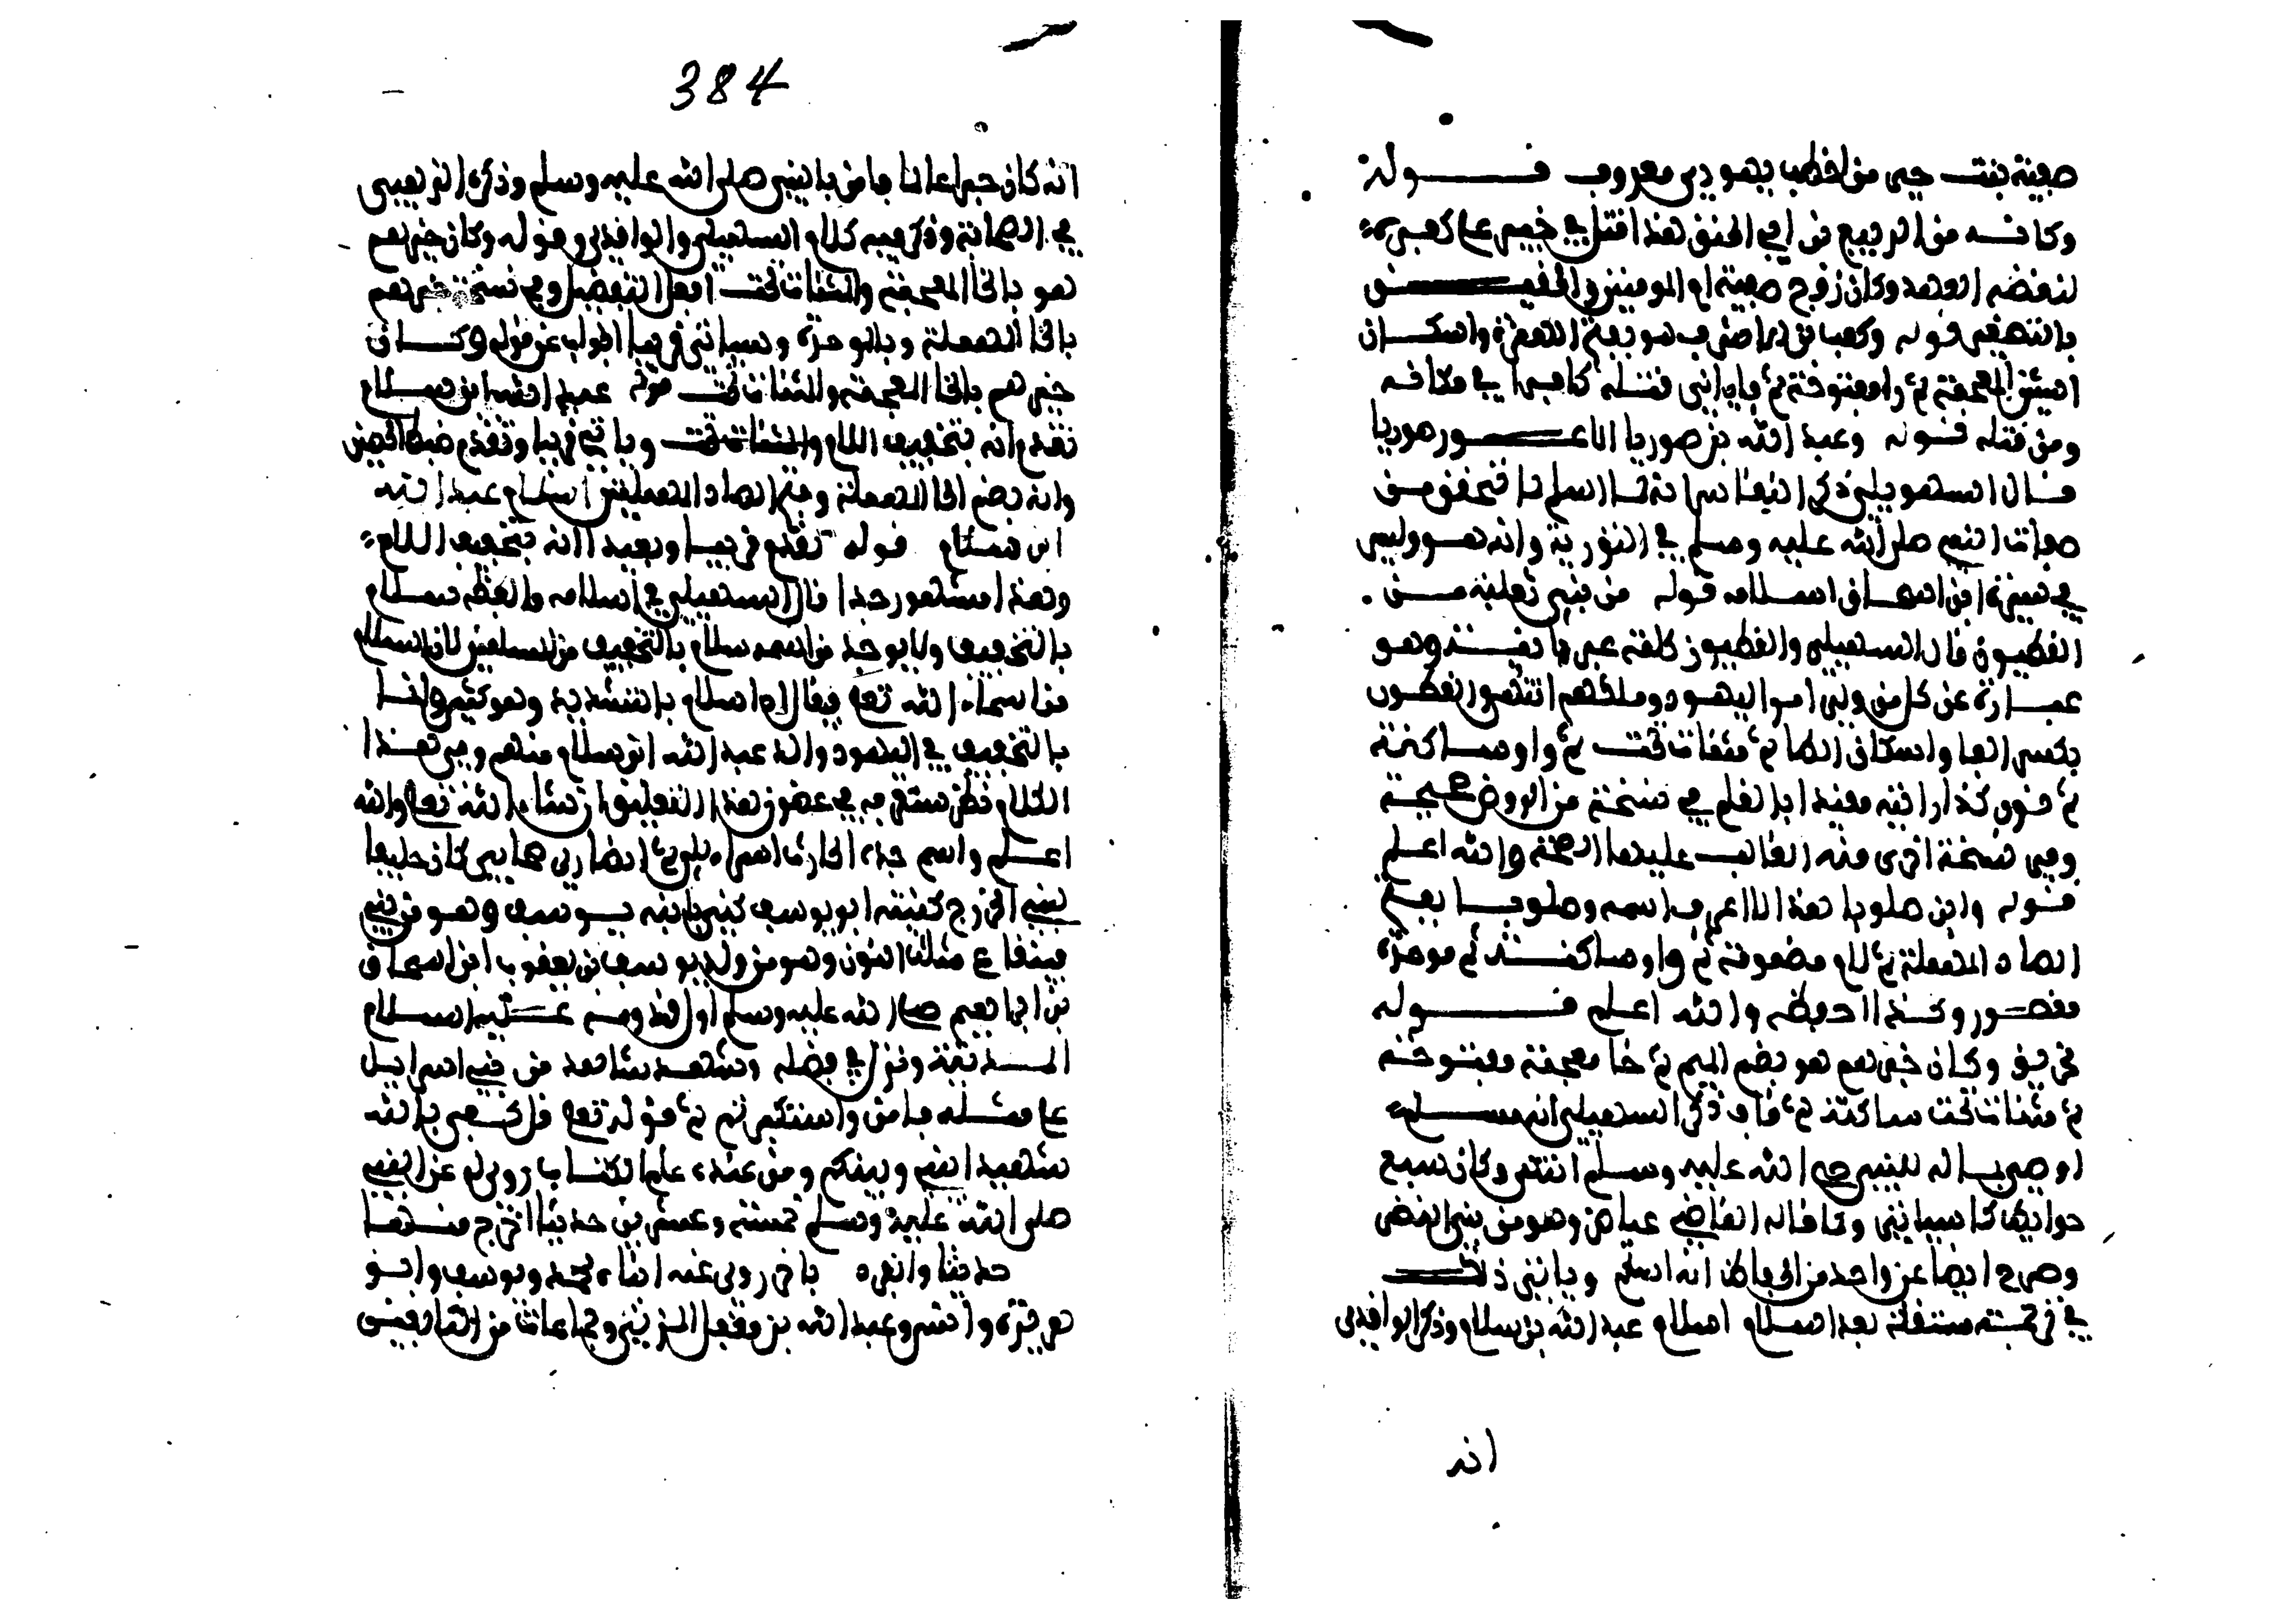 صفية بنت حيي من اخطب يهودي معروف قوله
وكانه من الربيع بن ابي الحقيق هذا قتل في خيبر علي كفره
لنقضه العهد وكان زوج صفية ام المومنين والحقيق
بالتصغير قوله وكعب بن الاشرف هو بفتح الهمزة واسكان
الشين المعجمة ثم را مفتوحة ثم فا ياتي قتله كافرا في مكانه
ومن قتله قوله وعبد الله بن صوريا الاعور صوريا
قال السهيلي ذكر النقاش انه لما اسلم لما تحقق من
صفات النبي صلى الله عليه وسلم في التورية وانه هو وليس
في سيرة ابن اسحاق اسلامه قوله من بني ثعلبة من
الفطيون قال السهيلي والفطيون كلمة عبرانية وهو
عبارة عن كل من ولي امر اليهود وملكهم انتهى والفطيون
بكسر الفا واسكان الطا ثم مثناة تحت ثم واو ساكنة
ثم نون كذا رايته مقيدا بالقلم في نسخة من الروض صحيحة
وفي نسخة اخرى منه الغالب عليها الصحة والله اعلم
قوله وابن صلوبا هذا لا اعرف اسمه وصلوبا بفتح
الصاد المهملة ثم لام مضمومة ثم واو ساكنة ثم موحدة
مقصور وكذا احفظه والله اعلم قوله
مخريق وكان خيرهم هو بضم الميم ثم خا معجمة مفتوحة
ثم مثناة تحت ساكنة ثم قاف ذكر السهيلي انه مسلم
اوصى بماله للنبي صلى الله عليه وسلم انتهى وكان سبع
حوايط كما سياتي وكما قاله القاضي عياض وهو من بني النضير
وصرح ايضا غير واحد من الحفاظ انه اسلم وياتي ذلك
في ترجمة مستقلة بعد اسلام اسلام عبد الله بن سلام وذكر الواقدي
انه
384
انه كان حبرا عالما فامن بالنبي صلى الله عليه وسلم وذكره الذهبي
في الصحابة وذكر فيه كلام السهيلي والواقدي وقوله وكان خيرهم
هو بالخا المعجمة والمثناة تحت افعل التفضيل وفي نسخة حبرهم
بالحا المهملة وبالموحدة وسياتي قريبا الجواب عن قوله وكان
خيرهم بالخا المعجمة والمثناة تحت قوله عبد الله بن سلام
تقدم انه بتخفيف اللام وياتي قريبا وتقدم ضبط الحصين
وانه بضم الحا المهملة وفتح الصاد المهملتين اسلام عبد الله
ابن سلام قوله تقدم قريبا وبعيدا انه بتخفيف اللام
وهذا مشهور جدا قال السهيلي في اسلامه ولفظه سلام
بالتخفيف ولا يوجد من اسمه سلام بالتخفيف من المسلمين لان السلام
من اسماء الله تعلى فيقال سلام بالتشديد وهو كثير وانما
بالتخفيف في اليهود والد عبد الله ابن سلام منهم وفي هذا
الكلام نظر ستعرفه في غضون هذا التعليق ان شاء الله تعلى والله
اعلم واسم جده الحارث اسراءيلي ثم انصاري صحابي كان حليفا
لبني الخزرج كنيته ابو يوسف كني بابنه يوسف وهو من بني
قينقاع مثلث النون وهو من ولد يوسف بن يعقوب ابن اسحاق
بن ابراهيم صلى الله عليه وسلم اول قدومه عليه السلام
المدينة ونزل في فضله وشهد شاهد من بني اسراءيل
على مثله فامن واستكبرتم ثم قوله تعلى قل كفى بالله
شهيدا بيني وبينكم ومن عنده علم الكتاب روي له عن النبي
صلى الله عليه وسلم خمسة وعشرين حديثا اخرج منها
حديثا وانفرد باخر روى عنه ابناه محمد ويوسف وابو
هريرة وانس وعبد الله بن مغفل المزني وجماعات من التابعين